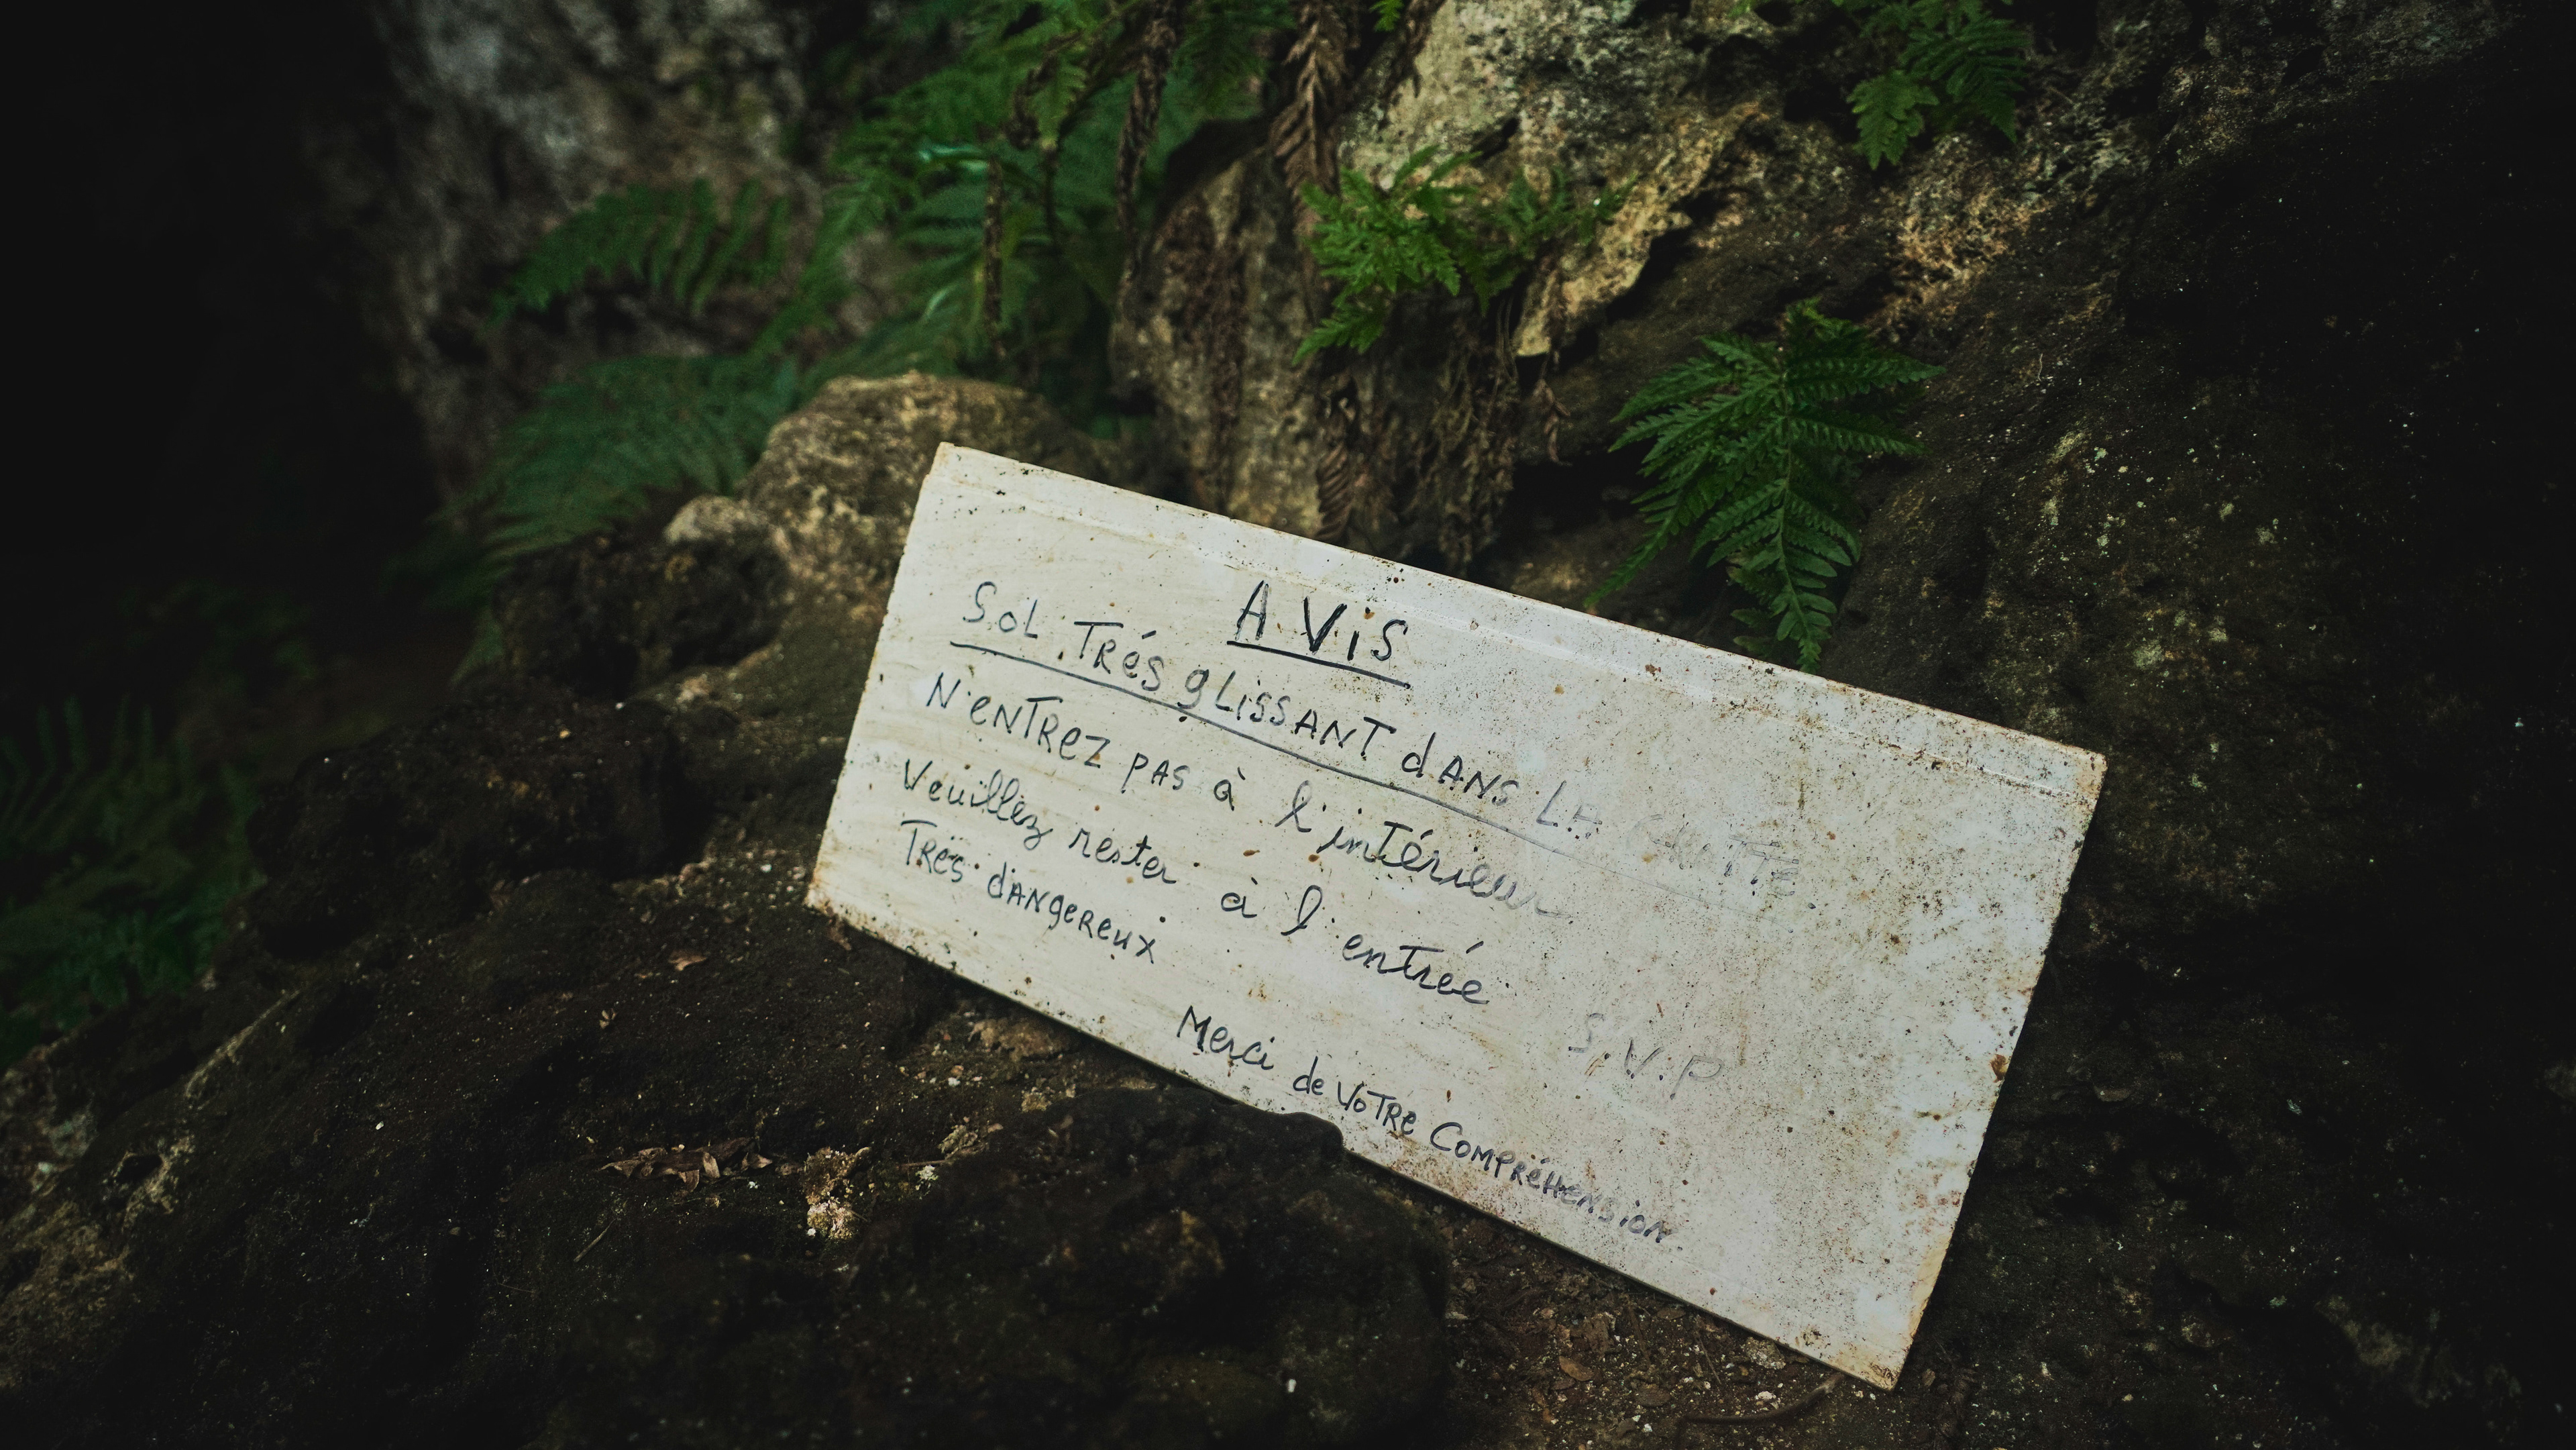 AViS
SoL TRéS gLiSSANT dANS LA GROTTE.
N'eNTRez PAS à l'intérieur
Veuillez rester à l'entrée S.V.P
TRès dANgeReux
Merci de VoTRe CoMPRéHeNSioN.